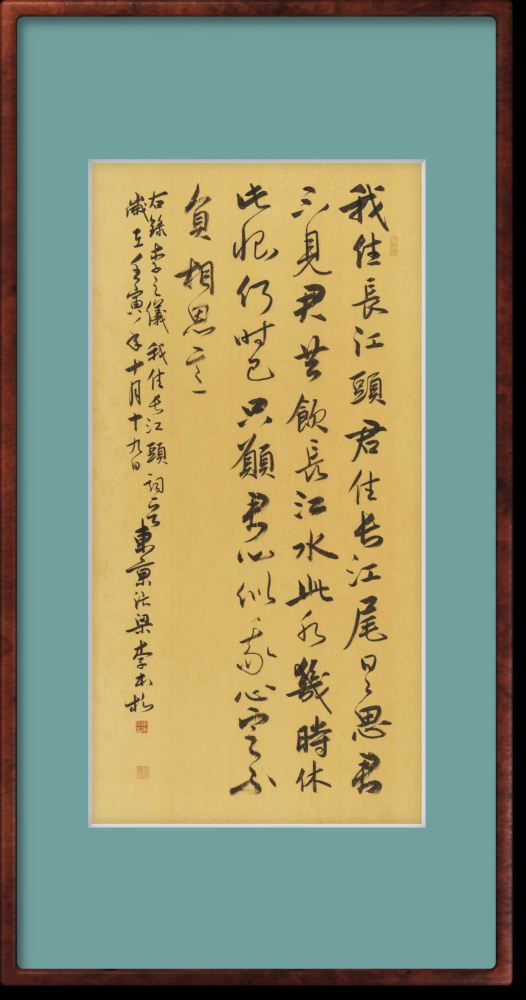 我住長江頭君住长江尾日日思君
不見君共飲長江水此水幾時休
此恨何时已只願君心似我心定不
負相思意
右錄李之儀我住长江頭詞
歲在壬寅年十月十九日東京汴梁李本